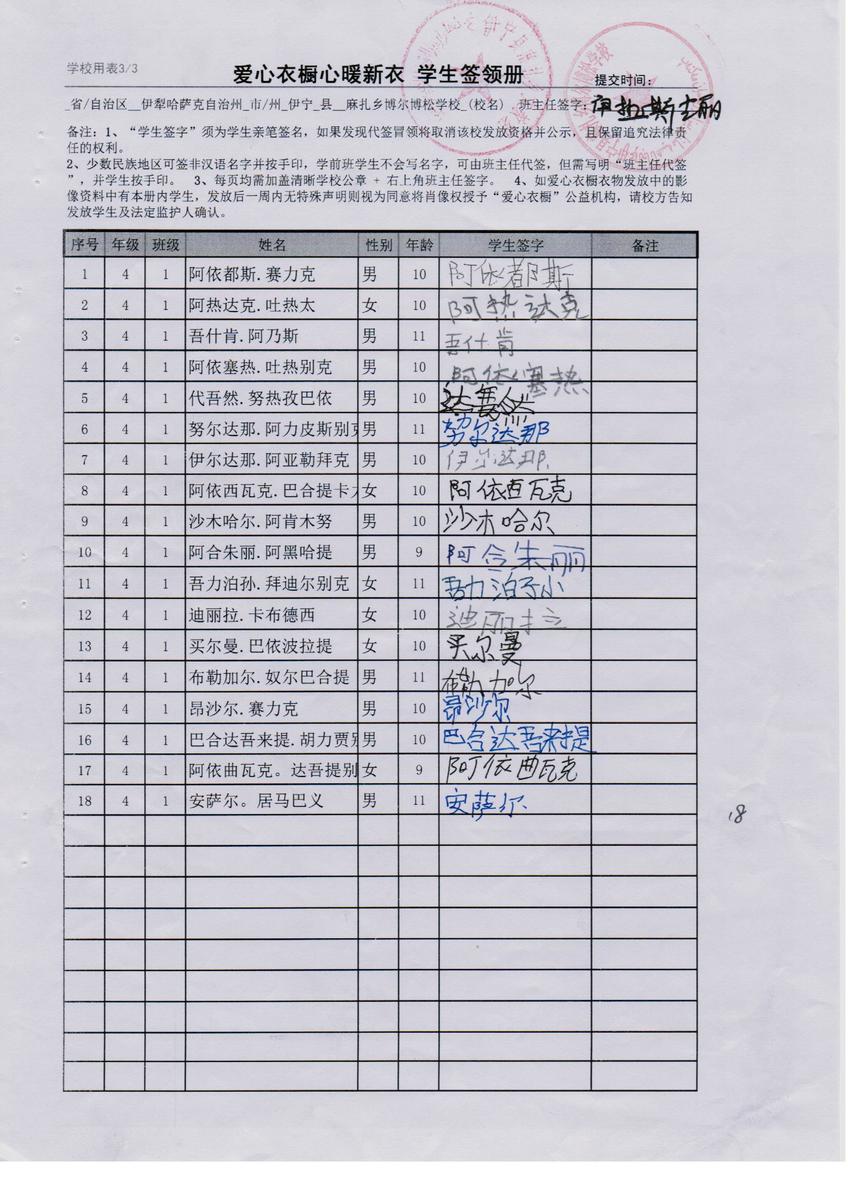 学校用表3/3
爱心衣橱心暖新衣 学生签领册
提交时间:
_省/自治区__伊犁哈萨克自治州_市/州_伊宁_县__麻扎乡博尔博松学校_(校名) 班主任签字:
备注:1、“学生签字”须为学生亲笔签名,如果发现代签冒领将取消该校发放资格并公示,且保留追究法律责
任的权利。
2、少数民族地区可签非汉语名字并按手印,学前班学生不会写名字,可由班主任代签,但需写明“班主任代签
”,并学生按手印。 3、每页均需加盖清晰学校公章 + 右上角班主任签字。 4、如爱心衣橱衣物发放中的影
像资料中有本册内学生,发放后一周内无特殊声明则视为同意将肖像权授予“爱心衣橱”公益机构,请校方告知
发放学生及法定监护人确认。
序号 年级 班级 姓名 性别 年龄 学生签字 备注
1 4 1 阿依都斯.赛力克 男 10 阿依都斯
2 4 1 阿热达克.吐热太 女 10 阿热达克
3 4 1 吾什肯.阿乃斯 男 11 吾什肯
4 4 1 阿依塞热.吐热别克 男 10 阿依塞热
5 4 1 代吾然.努热孜巴依 男 10 达吾然
6 4 1 努尔达那.阿力皮斯别克 男 11 努尔达那
7 4 1 伊尔达那.阿亚勒拜克 男 10 伊尔达那
8 4 1 阿依西瓦克.巴合提卡 女 10 阿依西瓦克
9 4 1 沙木哈尔.阿肯木努 男 10 沙木哈尔
10 4 1 阿合朱丽.阿黑哈提 男 9 阿合朱丽
11 4 1 吾力泊孙.拜迪尔别克 女 11 吾力泊孙
12 4 1 迪丽拉.卡布德西 女 10 迪丽拉
13 4 1 买尔曼.巴依波拉提 女 10 买尔曼
14 4 1 布勒加尔.奴尔巴合提 男 11 布勒加尔
15 4 1 昂沙尔.赛力克 男 10 昂沙尔
16 4 1 巴合达吾来提.胡力贾别 男 10 巴合达吾来提
17 4 1 阿依曲瓦克。达吾提别 女 9 阿依曲瓦克
18 4 1 安萨尔。居马巴义 男 11 安萨尔
18